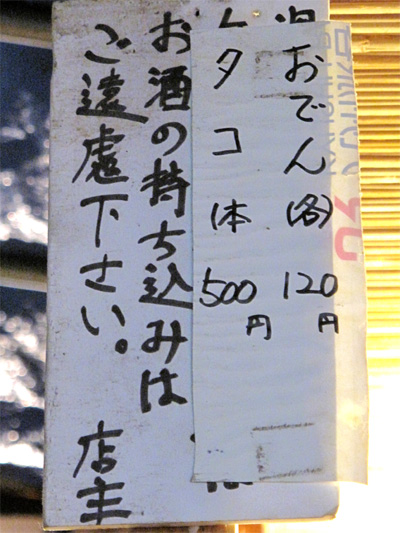 おでん(各) 120円
タコ 1本 500円
お酒の持ち込みは
ご遠慮下さい。 店主